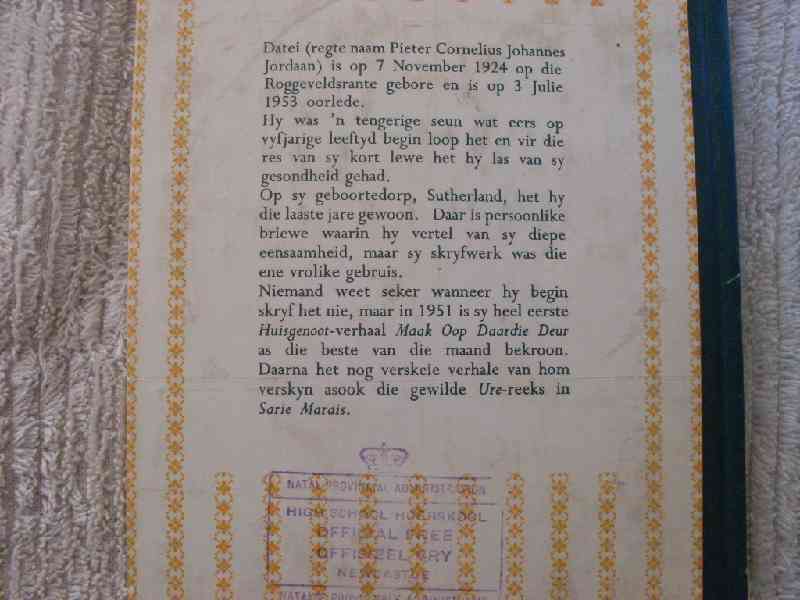 Datei (regte naam Pieter Cornelius Johannes
Jordaan) is op 7 November 1924 op die
Roggeveldsrante gebore en is op 3 Julie
1953 oorlede.
Hy was 'n tengerige seun wat eers op
vyfjarige leeftyd begin loop het en vir die
res van sy kort lewe het hy las van sy
gesondheid gehad.
Op sy geboortedorp, Sutherland, het hy
die laaste jare gewoon. Daar is persoonlike
briewe waarin hy vertel van sy diepe
eensaamheid, maar sy skryfwerk was die
ene vrolike gebruis.
Niemand weet seker wanneer hy begin
skryf het nie, maar in 1951 is sy heel eerste
Huisgenoot-verhaal Maak Oop Daardie Deur
as die beste van die maand bekroon.
Daarna het nog verskeie verhale van hom
verskyn asook die gewilde Ure-reeks in
Sarie Marais.
NATAL PROVINCIAL ADMINISTRATION
HIGH SCHOOL HOËRSKOOL
OFFICIAL FREE
OFFISIEEL VRY
NEWCASTLE